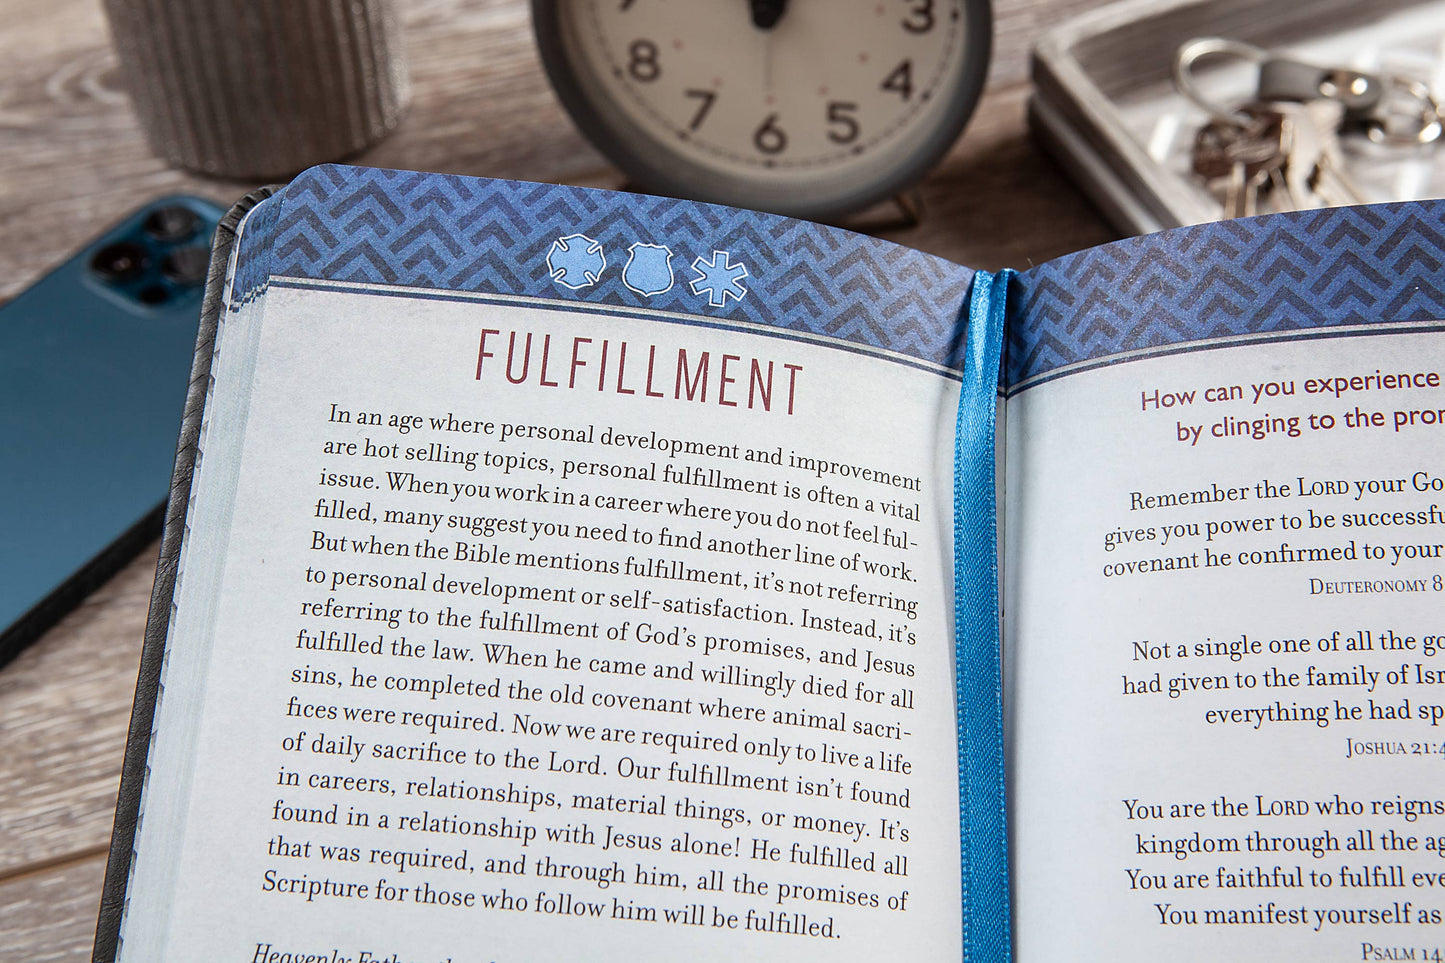 8
7
6
5
4
3
FULFILLMENT
In an age where personal development and improvement
are hot selling topics, personal fulfillment is often a vital
issue. When you work in a career where you do not feel ful-
filled, many suggest you need to find another line of work.
But when the Bible mentions fulfillment, it's not referring
to personal development or self-satisfaction. Instead, it's
referring to the fulfillment of God's promises, and Jesus
fulfilled the law. When he came and willingly died for all
sins, he completed the old covenant where animal sacri-
fices were required. Now we are required only to live a life
of daily sacrifice to the Lord. Our fulfillment isn't found
in careers, relationships, material things, or money. It's
found in a relationship with Jesus alone! He fulfilled all
that was required, and through him, all the promises of
Scripture for those who follow him will be fulfilled.
Heavenly
How can you experience
by clinging to the
Remember the LORD your
gives you power to be
covenant he confirmed to your
DEUTERONOMY 8
Not a single one of all the
had given to the family of
everything he had
JOSHUA 21:
You are the LORD who reigns
kingdom through all the
You are faithful to fulfill
You manifest yourself as
PSALM